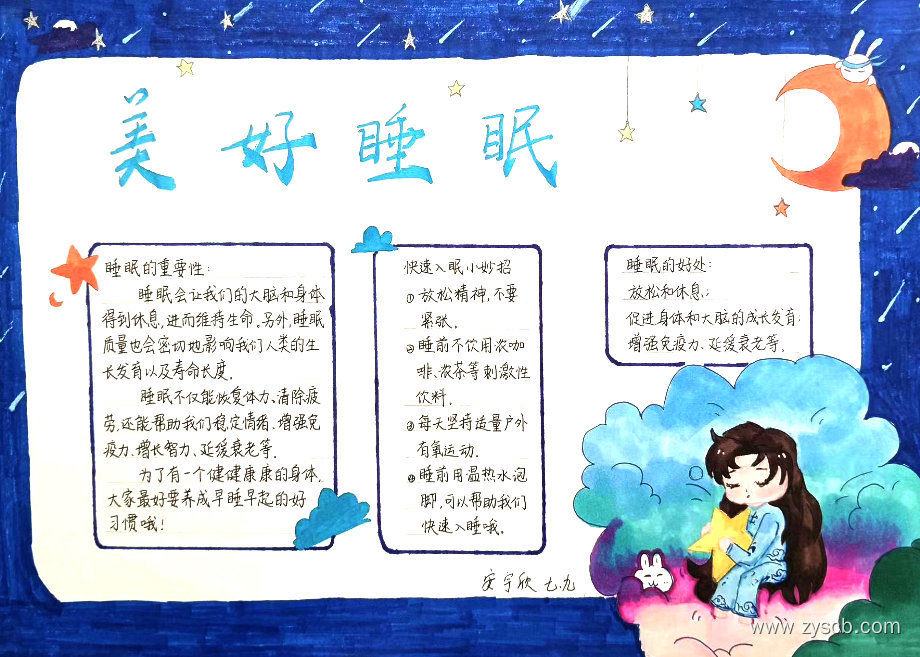 美好睡眠
睡眠的重要性:
睡眠会让我们的大脑和身体
得到休息,进而维持生命。另外,睡眠
质量也会密切地影响我们人类的生
长发育以及寿命长度。
睡眠不仅能恢复体力、清除疲
劳,还能帮助我们稳定情绪、增强免
疫力、增长智力、延缓衰老等。
为了有一个健健康康的身体,
大家最好要养成早睡早起的好
习惯哦!
快速入眠小妙招
①放松精神,不要
紧张。
②睡前不饮用浓咖
啡、浓茶等刺激性
饮料。
③每天坚持适量户外
有氧运动。
④睡前用温热水泡
脚,可以帮助我们
快速入睡哦。
睡眠的好处:
放松和休息;
促进身体和大脑的成长发育;
增强免疫力、延缓衰老等。
安宇欣 七.九
www.zyscb.com